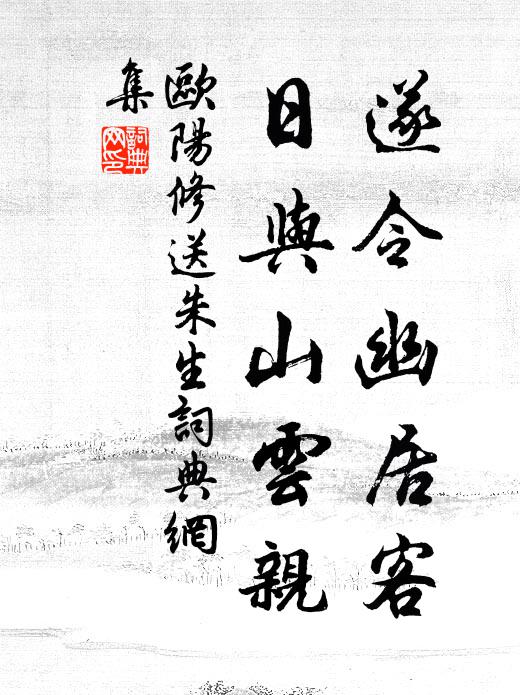 遂令幽居客
日與山雲親
歐陽修送朱生詞典網
集
詞典
網印